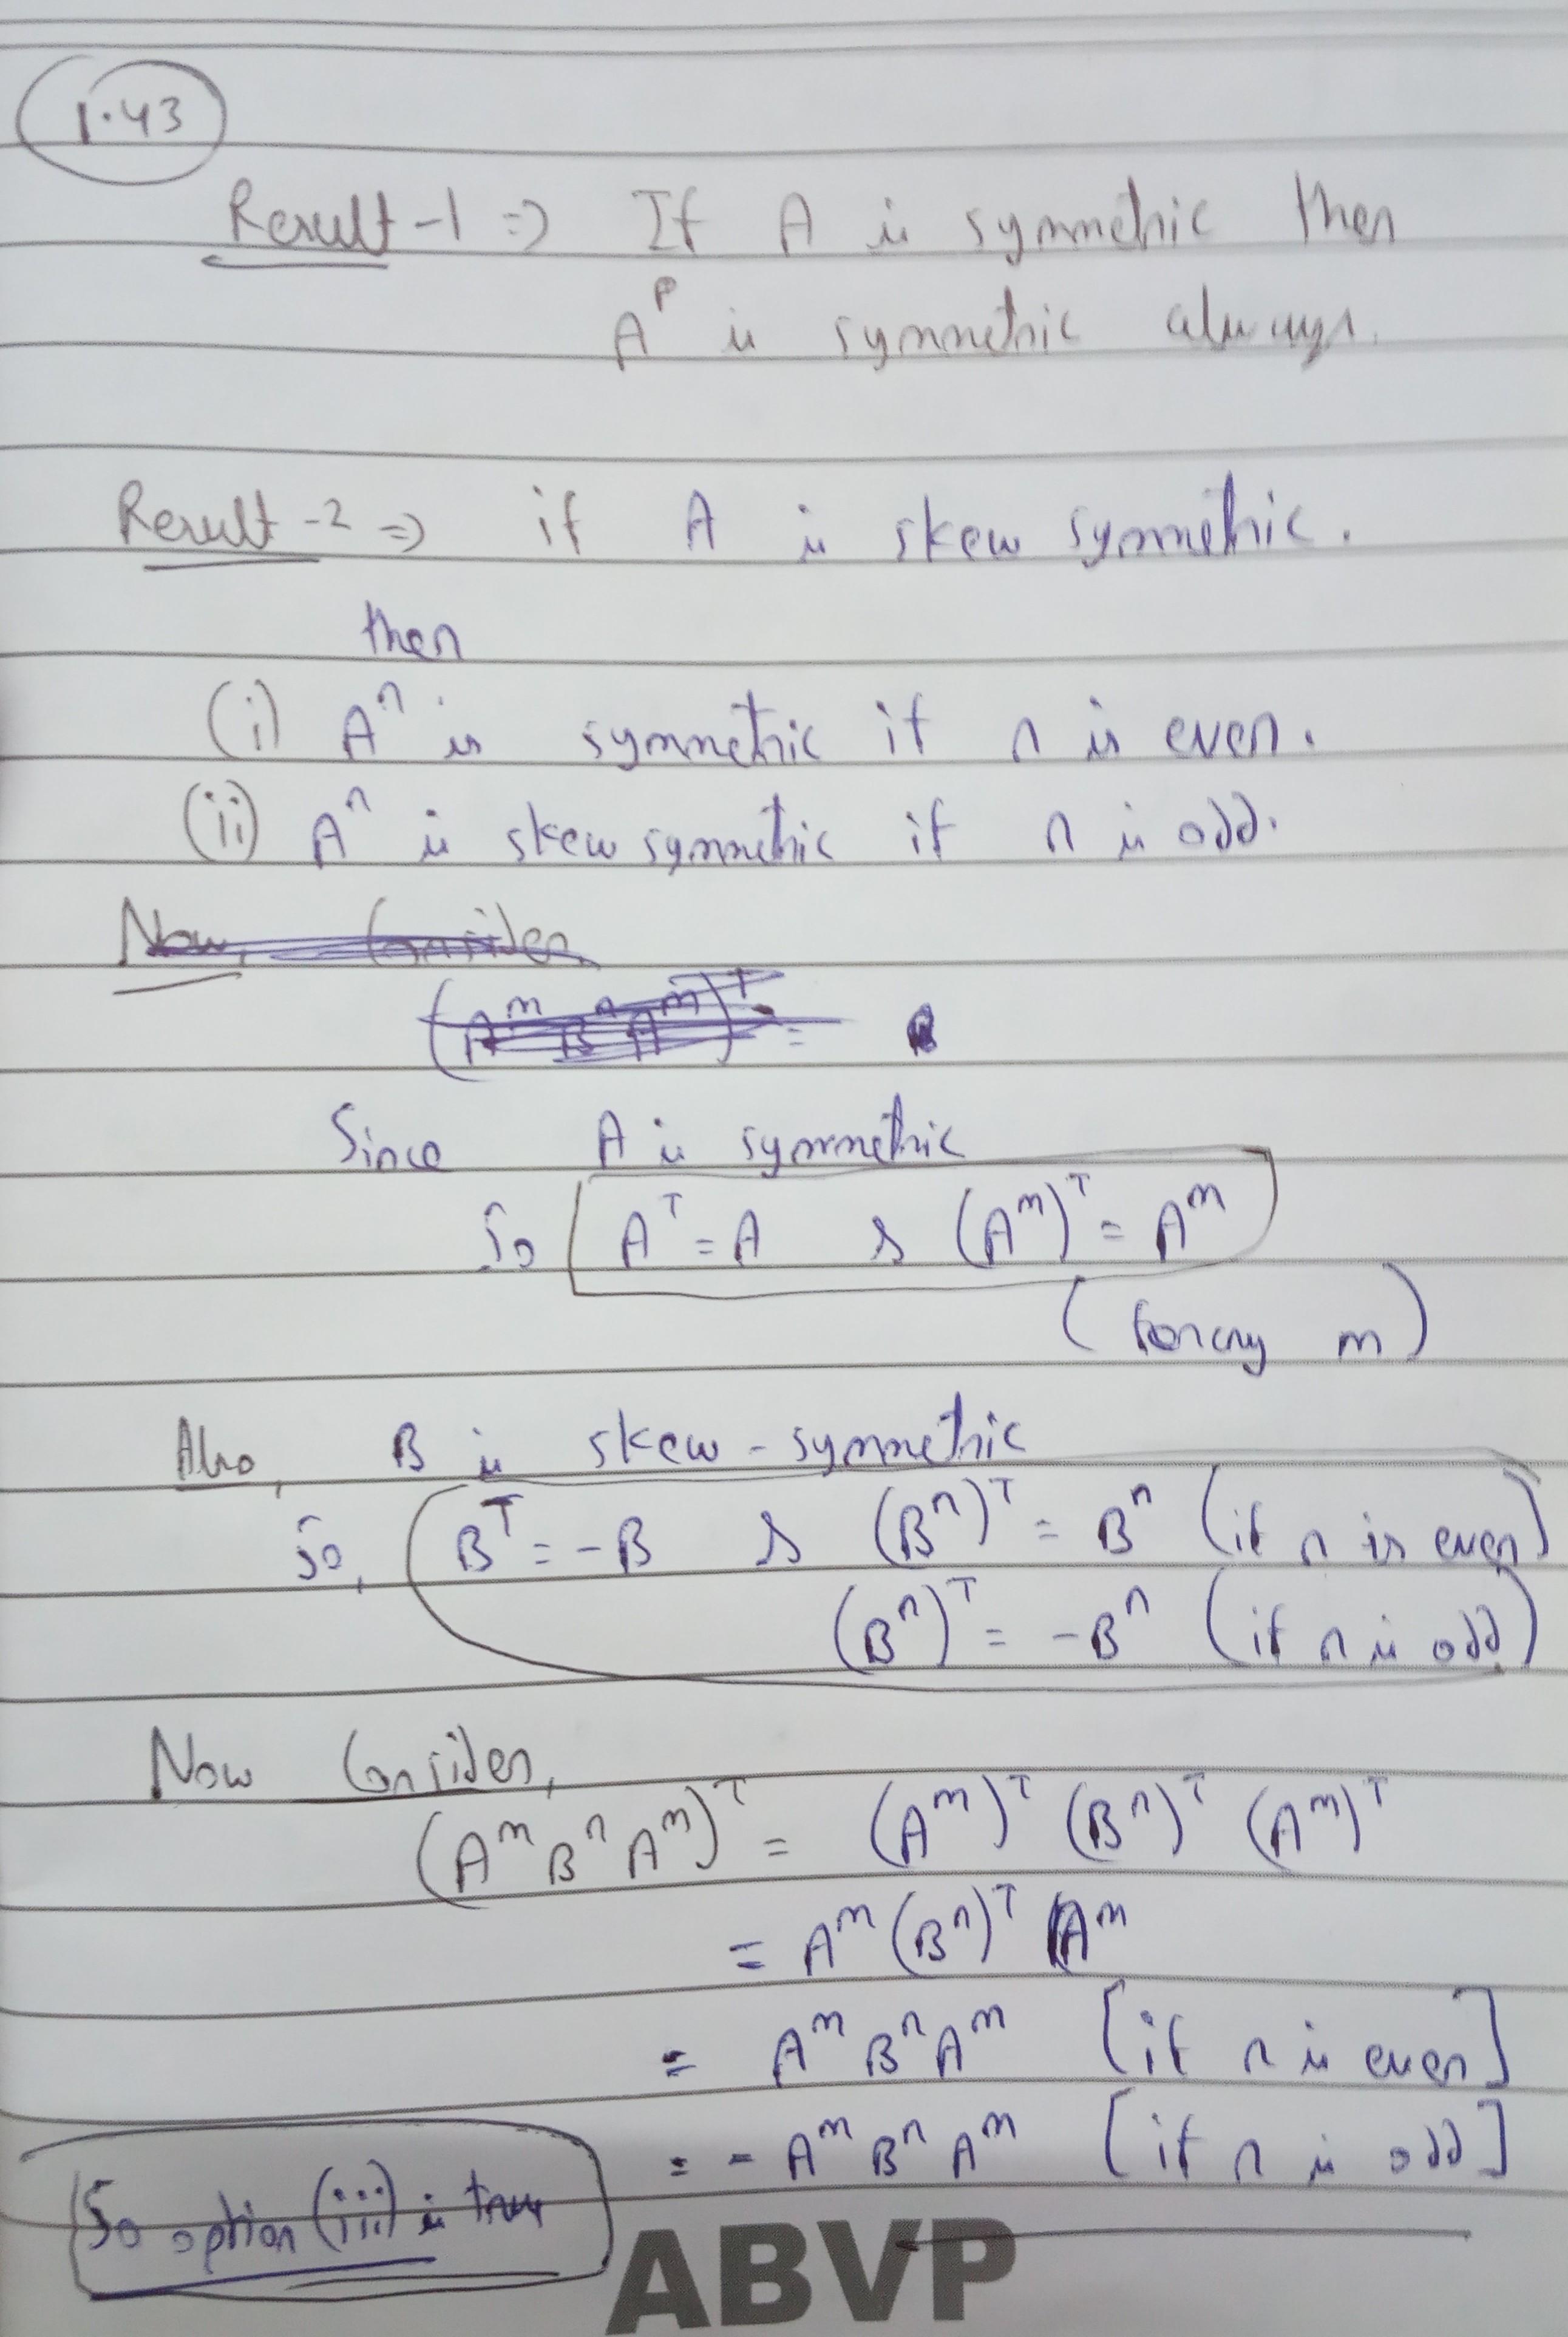 1.43
Result-1 => If A is symmetric then
A^P is symmetric always.
Result-2 => if A is skew symmetric.
then
(i) A^n is symmetric if n is even.
(ii) A^n is skew symmetric if n is odd.
Now, Consider
(A^m B^n A^m)^T =
Since A is symmetric
So A^T = A & (A^m)^T = A^m
(for any m)
Also, B is skew-symmetric
So, B^T = -B & (B^n)^T = B^n (if n is even)
(B^n)^T = -B^n (if n is odd)
Now Consider,
(A^m B^n A^m)^T = (A^m)^T (B^n)^T (A^m)^T
= A^m (B^n)^T A^m
= A^m B^n A^m [if n is even]
= - A^m B^n A^m [if n is odd]
So option (iii) is true
ABVP